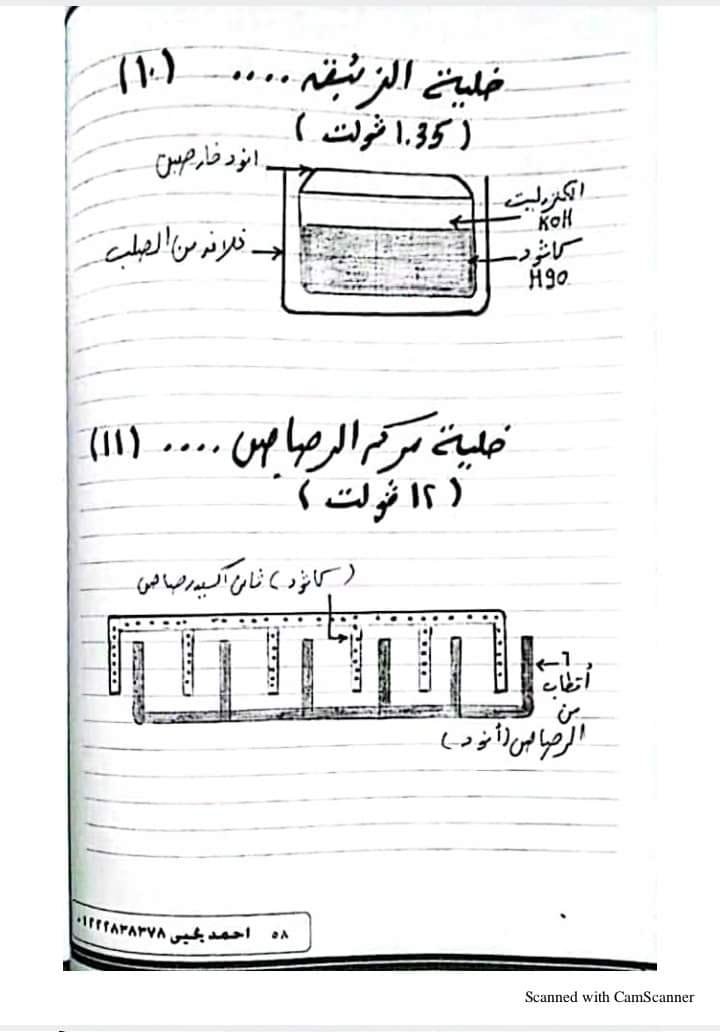 خلية الزئبق .... (١٠)
(1.35 ڤولت)
انود خارصين
الكتروليت
KOH
غلاف من الصلب
كاثود
HgO
خلية مركم الرصاص .... (١١)
(١٢ ڤولت)
(كاثود) ثاني أكسيد رصاص
٦
أقطاب
من
الرصاص (أنود)
٥٨ احمد يحيى ٠١٢٢٢٨٣٨٣٧٨
Scanned with CamScanner